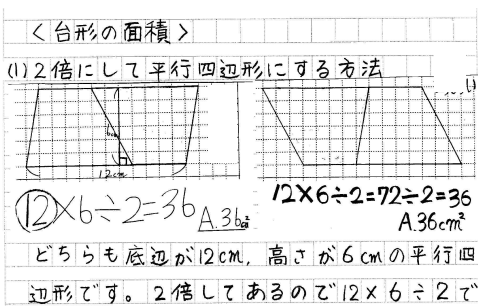 〈台形の面積〉
(1)2倍にして平行四辺形にする方法
12cm
12×6÷2=36 A.36cm²
12×6÷2=72÷2=36
A.36cm²
どちらも底辺が12cm, 高さが6cmの平行四
辺形です。2倍してあるので12×6÷2で